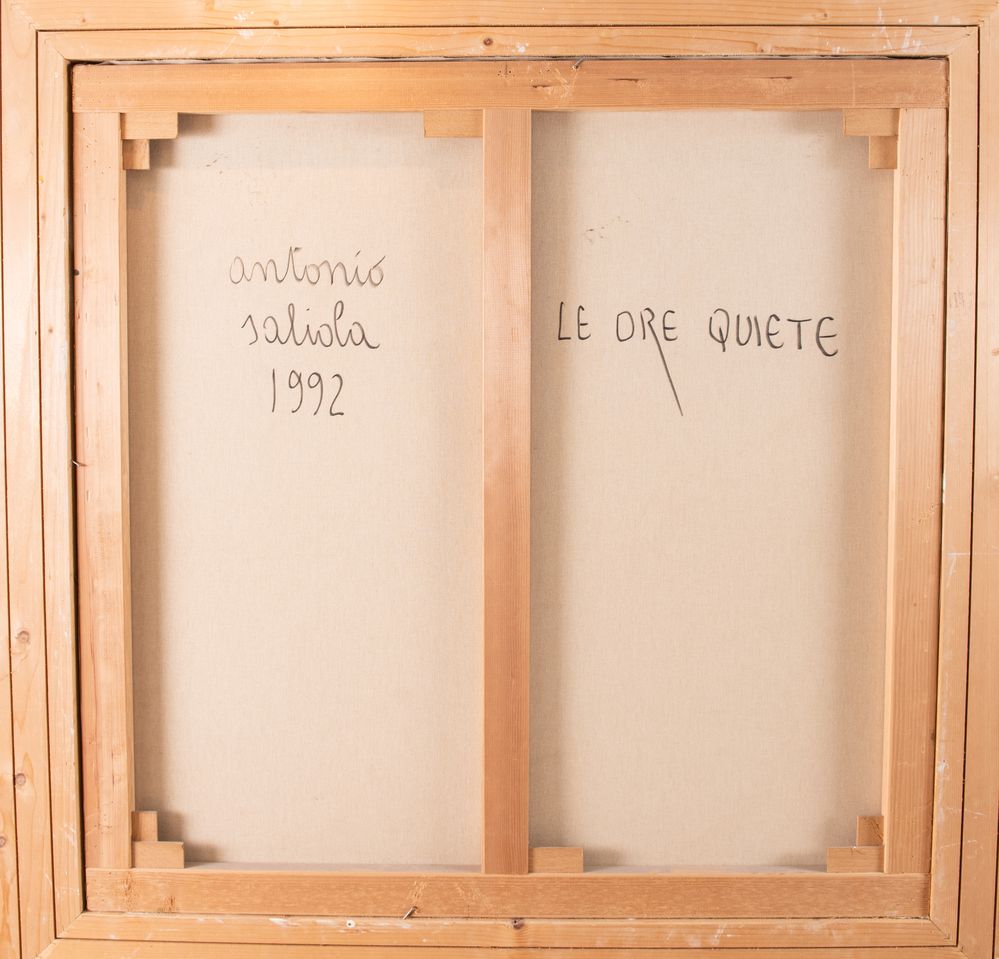 antonio
saliola
1992
LE ORE QUIETE